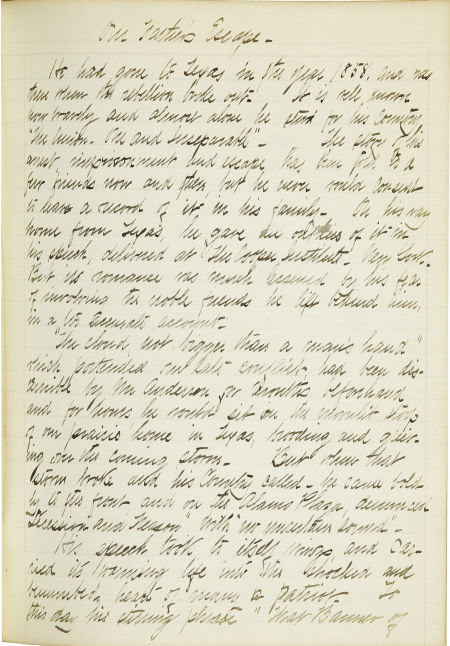 Our Father's Escape -
He had gone to Texas in the year 1858, and was
there when the rebellion broke out - It is well known
how bravely and almost alone he stood for his Country,
"the Union - One and Inseparable" - The story of his
arrest, imprisonment and escape, has been told to a
few friends now and then, but he never would consent
to leave a record of it in his family - On his way
home from Texas, he gave an outline of it in
his speech, delivered at The Cooper Institute - New York -
But its romance was much lessened by his fear
of involving the noble friends he left behind him,
in a too accurate account -
"The cloud, not bigger than a man's hand"
which portended our late conflict, had been dis-
cernible by Mr. Anderson for months beforehand
and for hours he would sit on the steps
of our prairie home in Texas, brooding and griev-
ing over the coming storm - But when that
storm broke and his Country called - he came bold-
ly to the front and on the Alamo Plaza, denounced
Secession and Treason "with no uncertain sound" -
His speech took to itself wings and car-
ried its life into the shocked and
hearts of many a patriot - To
this day his stirring phrase "that Banner of